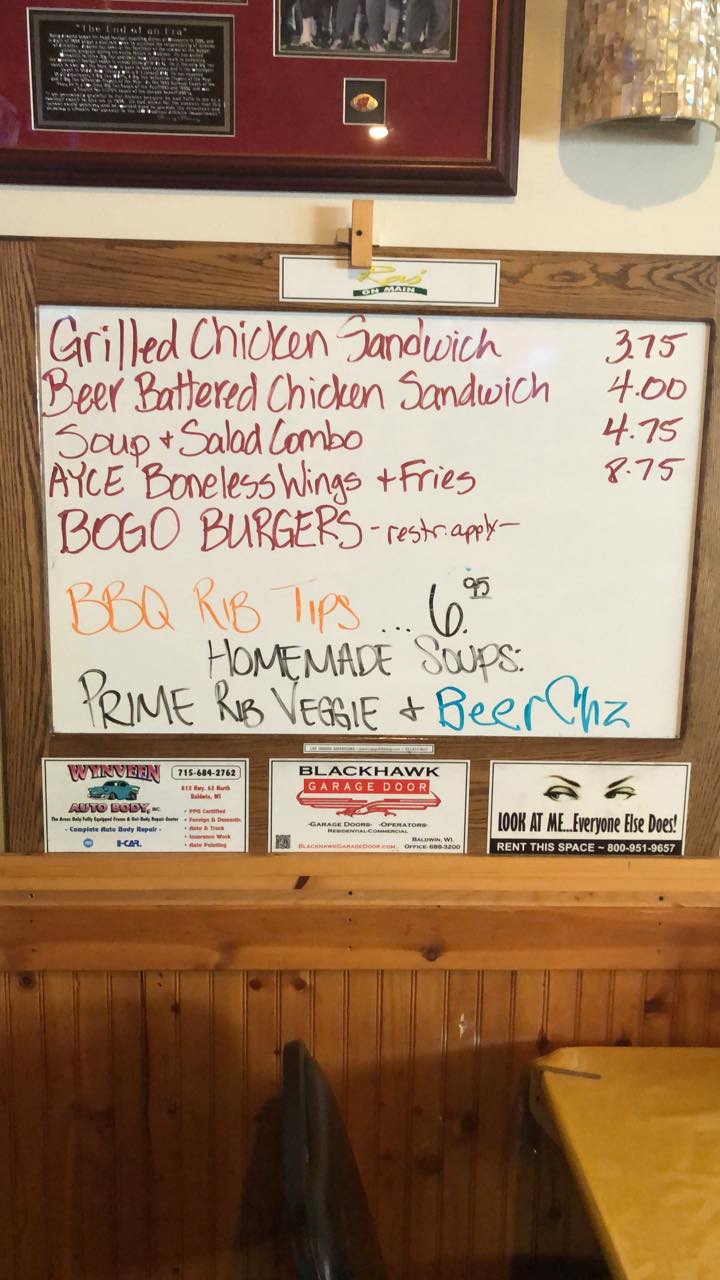 "The End of an Era"
ON MAIN
Grilled Chicken Sandwich 3.75
Beer Battered Chicken Sandwich 4.00
Soup + Salad Combo 4.75
AYCE Boneless Wings + Fries 8.75
BOGO BURGERS -restr. apply-
BBQ RIB TIPS ... 6.95
HOMEMADE SOUPS:
PRIME RIB VEGGIE + Beer Chz
WYNVEEN
AUTO BODY, INC.
715-684-2762
812 Hwy. 63 North
Baldwin, WI
The Areas Only Fully Equipped Frame & Uni-Body Repair Center
- Complete Auto Body Repair -
I-CAR.
• PPG Certified
• Foreign & Domestic
• Auto & Truck
• Insurance Work
• Auto Painting
BLACKHAWK
GARAGE DOOR
-GARAGE DOORS- -OPERATORS-
RESIDENTIAL-COMMERCIAL
BALDWIN, WI.
BLACKHAWKGARAGEDOOR.COM OFFICE-688-3200
LOOK AT ME...Everyone Else Does!
RENT THIS SPACE ~ 800-951-9657